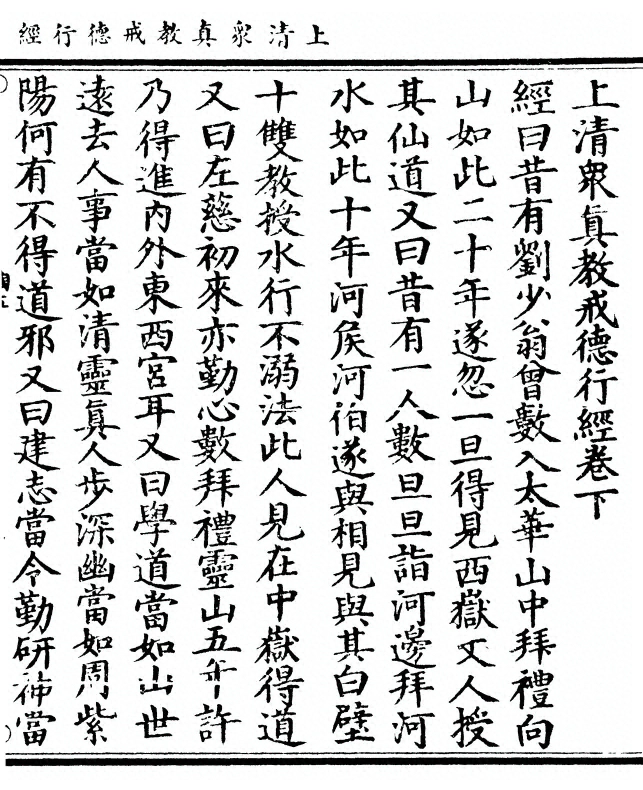 上清眾真教戒德行經
上清眾真教戒德行經卷下
經曰昔有劉少翁曾數入太華山中拜禮向
山如此二十年遂忽一旦得見西嶽丈人授
其仙道又曰昔有一人數旦旦詣河邊拜河
水如此十年河矦河伯遂與相見與其白璧
十雙教授水行不溺法此人見在中嶽得道
又曰左慈初來亦勤心數拜禮靈山五年許
乃得進內外東西宮耳又曰學道當如山世
遠去人事當如清靈真人步深幽當如周紫
陽何有不得道邪又曰建志當令勤研神當